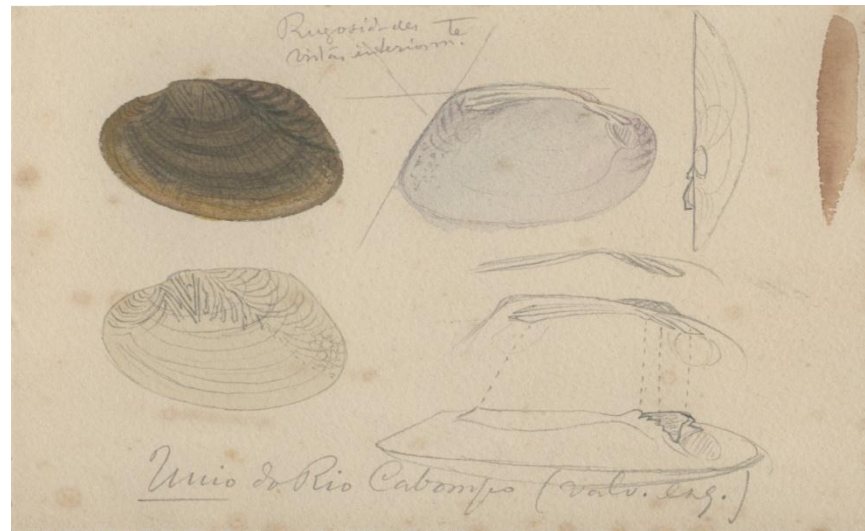 Rugosidades te
vistas interiorm.
Unio do Rio Cabompo (valv. esq.)